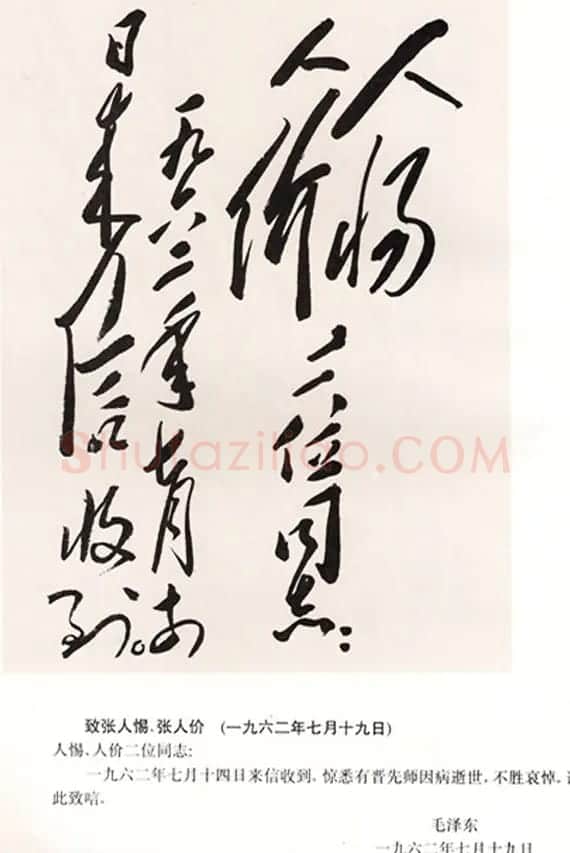 人惕
人价二位同志:
一九六二年七月十四
日来信收到。
ShufaziliaO.COM
致张人惕、张人价 (一九六二年七月十九日)
人惕、人价二位同志:
一九六二年七月十四日来信收到。惊悉有晋先师因病逝世,不胜哀悼。
此致唁。
毛泽东
一九六二年七月十九日